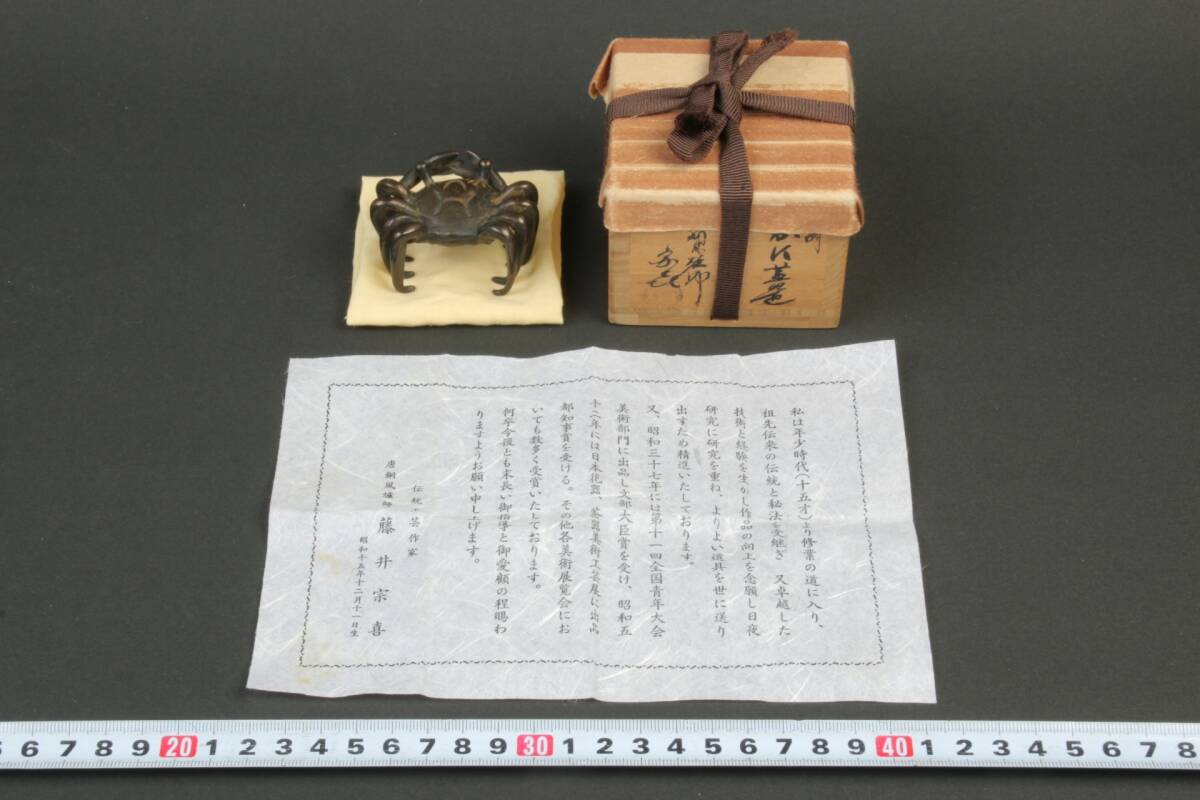 私は年少時代(十五才)より修業の道に入り、
祖先伝来の伝統と秘法を受継ぎ 又卓越した
技術と経験を生かし作品の向上を念願し日夜
研究に研究を重ね、よりよい道具を世に送り
出すため精進いたしております。
又、昭和三十七年には第十一回全国青年大会
美術部門に出品し文部大臣賞を受け、昭和五
十六年には日本花器、茶器美術工芸展に出品
都知事賞を受ける。その他各美術展覧会にお
いても数多く受賞いたしております。
何卒今後とも末長い御指導と御愛顧の程賜わ
りますようお願い申し上げます。
伝統工芸作家
唐銅風炉師 藤井宗喜
昭和十五年十二月十一日生
蓋置
宗喜
6 7 8 9 20 1 2 3 4 5 6 7 8 9 30 1 2 3 4 5 6 7 8 9 40 1 2 3 4 5 6 7 8